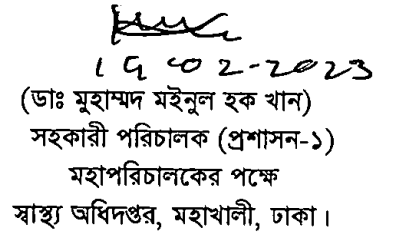 19-02-2023
(ডাঃ মুহাম্মদ মইনুল হক খান)
সহকারী পরিচালক (প্রশাসন-১)
মহাপরিচালকের পক্ষে
স্বাস্থ্য অধিদপ্তর, মহাখালী, ঢাকা।